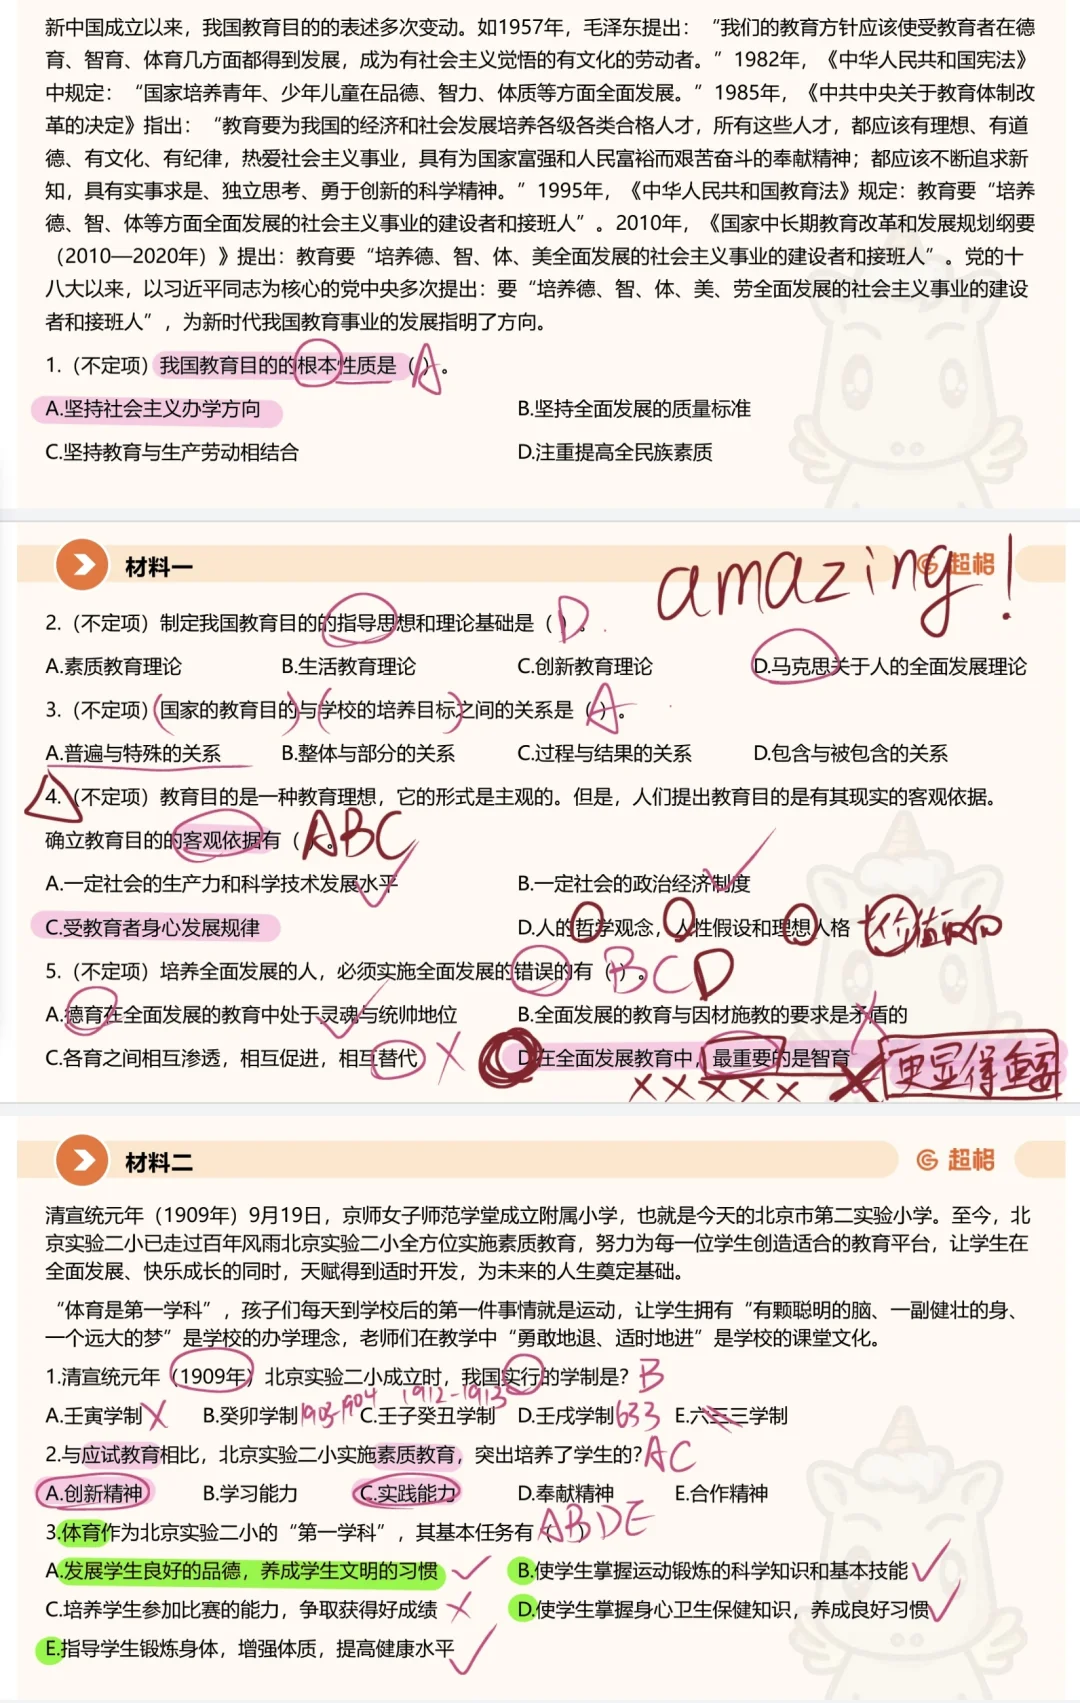 新中国成立以来，我国教育目的的表述多次变动。如1957年，毛泽东提出：“我们的教育方针应该使受教育者在德
育、智育、体育几方面都得到发展，成为有社会主义觉悟的有文化的劳动者。”1982年，《中华人民共和国宪法》
中规定：“国家培养青年、少年儿童在品德、智力、体质等方面全面发展。”1985年，《中共中央关于教育体制改
革的决定》指出：“教育要为我国的经济和社会发展培养各级各类合格人才，所有这些人才，都应该有理想、有道
德、有文化、有纪律，热爱社会主义事业，具有为国家富强和人民富裕而艰苦奋斗的奉献精神；都应该不断追求新
知，具有实事求是、独立思考、勇于创新的科学精神。”1995年，《中华人民共和国教育法》规定：教育要“培养
德、智、体等方面全面发展的社会主义事业的建设者和接班人”。2010年，《国家中长期教育改革和发展规划纲要
（2010—2020年）》提出：教育要“培养德、智、体、美全面发展的社会主义事业的建设者和接班人”。党的十
八大以来，以习近平同志为核心的党中央多次提出：要“培养德、智、体、美、劳全面发展的社会主义事业的建设
者和接班人”，为新时代我国教育事业的发展指明了方向。
1.（不定项）我国教育目的的根本性质是（ A ）。
A.坚持社会主义办学方向 B.坚持全面发展的质量标准
C.坚持教育与生产劳动相结合 D.注重提高全民族素质
材料一 amazing! 超格
2.（不定项）制定我国教育目的的指导思想和理论基础是（ D ）。
A.素质教育理论 B.生活教育理论 C.创新教育理论 D.马克思关于人的全面发展理论
3.（不定项）（国家的教育目的）与（学校的培养目标）之间的关系是（ A ）。
A.普遍与特殊的关系 B.整体与部分的关系 C.过程与结果的关系 D.包含与被包含的关系
4.（不定项）教育目的是一种教育理想，它的形式是主观的。但是，人们提出教育目的是有其现实的客观依据。
确立教育目的的客观依据有（ ABC ）。
A.一定社会的生产力和科学技术发展水平 B.一定社会的政治经济制度
C.受教育者身心发展规律 D.人的哲学观念，人性假设和理想人格 价值取向
5.（不定项）培养全面发展的人，必须实施全面发展的错误的有（ BCD ）。
A.德育在全面发展的教育中处于灵魂与统帅地位 B.全面发展的教育与因材施教的要求是矛盾的
C.各育之间相互渗透，相互促进，相互替代 X D.在全面发展教育中，最重要的是智育 更显得重要
XXXXX X
材料二 超格
清宣统元年（1909年）9月19日，京师女子师范学堂成立附属小学，也就是今天的北京市第二实验小学。至今，北
京实验二小已走过百年风雨北京实验二小全方位实施素质教育，努力为每一位学生创造适合的教育平台，让学生在
全面发展、快乐成长的同时，天赋得到适时开发，为未来的人生奠定基础。
“体育是第一学科”，孩子们每天到学校后的第一件事情就是运动，让学生拥有“有颗聪明的脑、一副健壮的身、
一个远大的梦”是学校的办学理念，老师们在教学中“勇敢地退、适时地进”是学校的课堂文化。
1.清宣统元年（1909年）北京实验二小成立时，我国实行的学制是？B
A.壬寅学制X B.癸卯学制1903-1904 C.壬子癸丑学制1912-1913 D.壬戌学制633 E.六三三学制
2.与应试教育相比，北京实验二小实施素质教育，突出培养了学生的？AC
A.创新精神 B.学习能力 C.实践能力 D.奉献精神 E.合作精神
3.体育作为北京实验二小的“第一学科”，其基本任务有（ABDE）
A.发展学生良好的品德，养成学生文明的习惯 B.使学生掌握运动锻炼的科学知识和基本技能
C.培养学生参加比赛的能力，争取获得好成绩 X D.使学生掌握身心卫生保健知识，养成良好习惯
E.指导学生锻炼身体，增强体质，提高健康水平